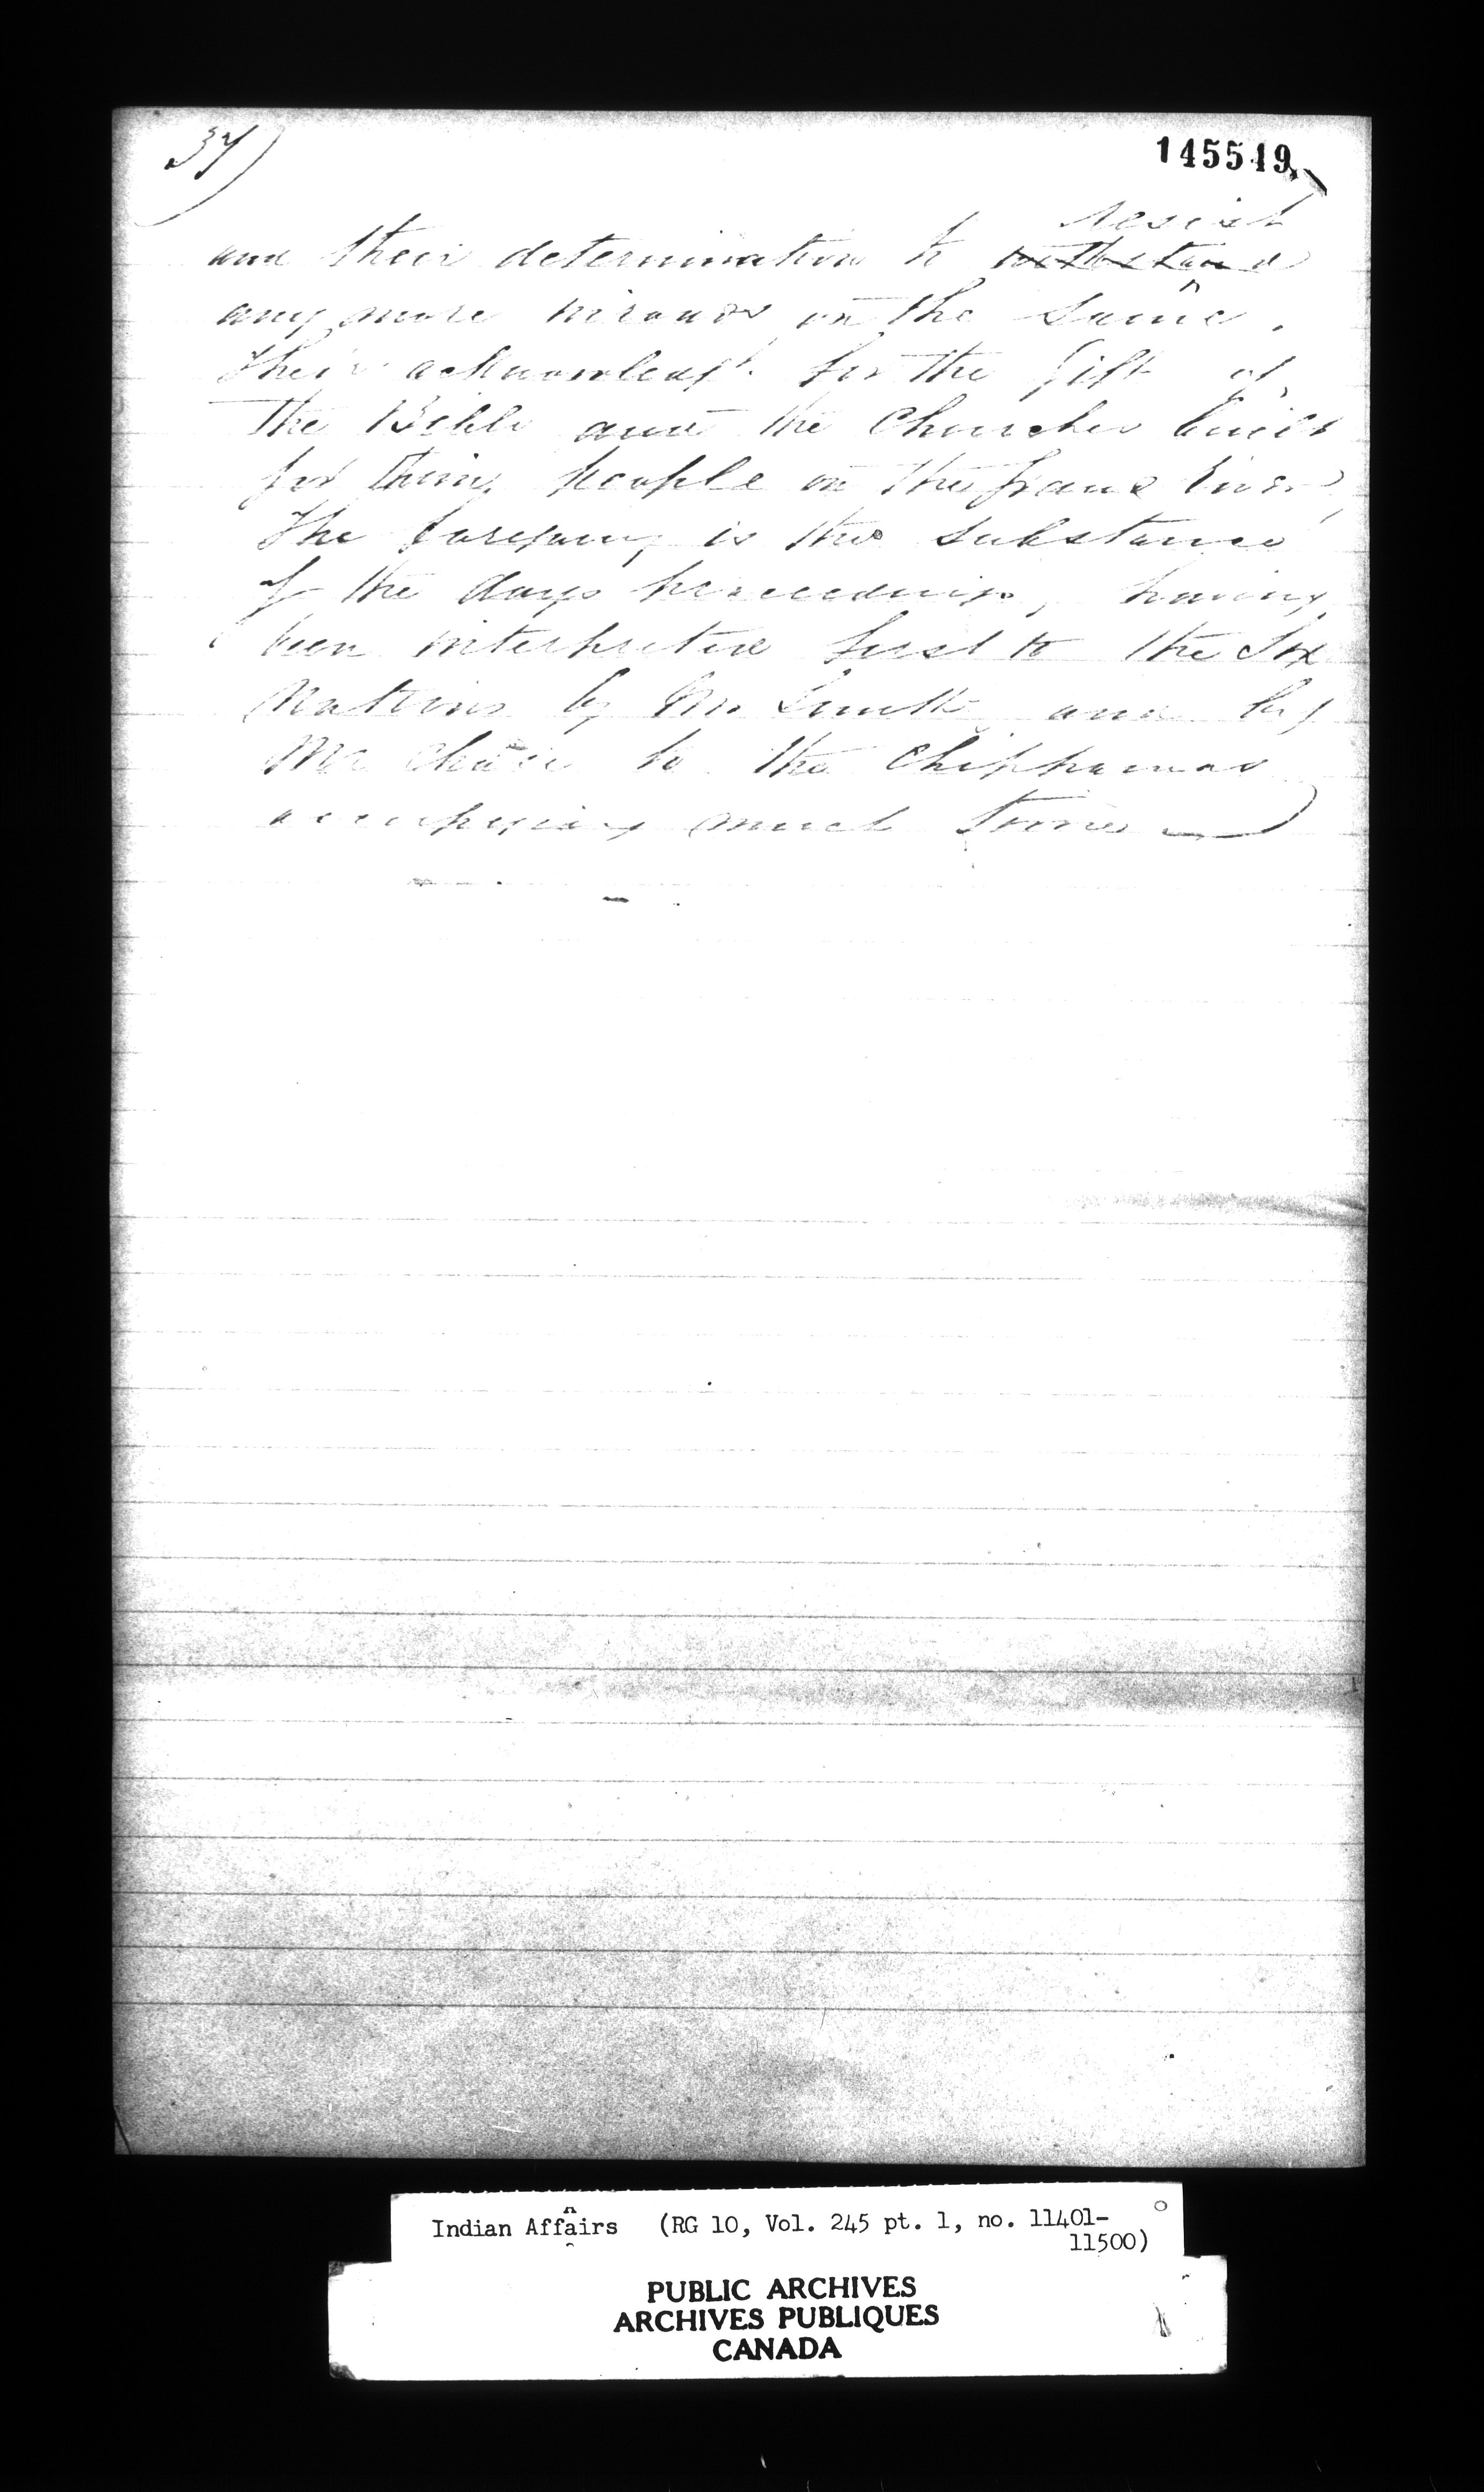 37)
145549
resist
and their determination to withstand
any more inroads on the same.
their acknowledgt. for the gift of
the Bible and the Churches built
for their people on the Grand River
The foregoing is the substance
of the days proceedings, having
been interpreted first to the Six
Nations by Mr Smith and by
Mr Chase to the Chippawas
occupying much time
Indian Affairs (RG 10, Vol. 245 pt. 1, no. 11401-
11500)
PUBLIC ARCHIVES
ARCHIVES PUBLIQUES
CANADA